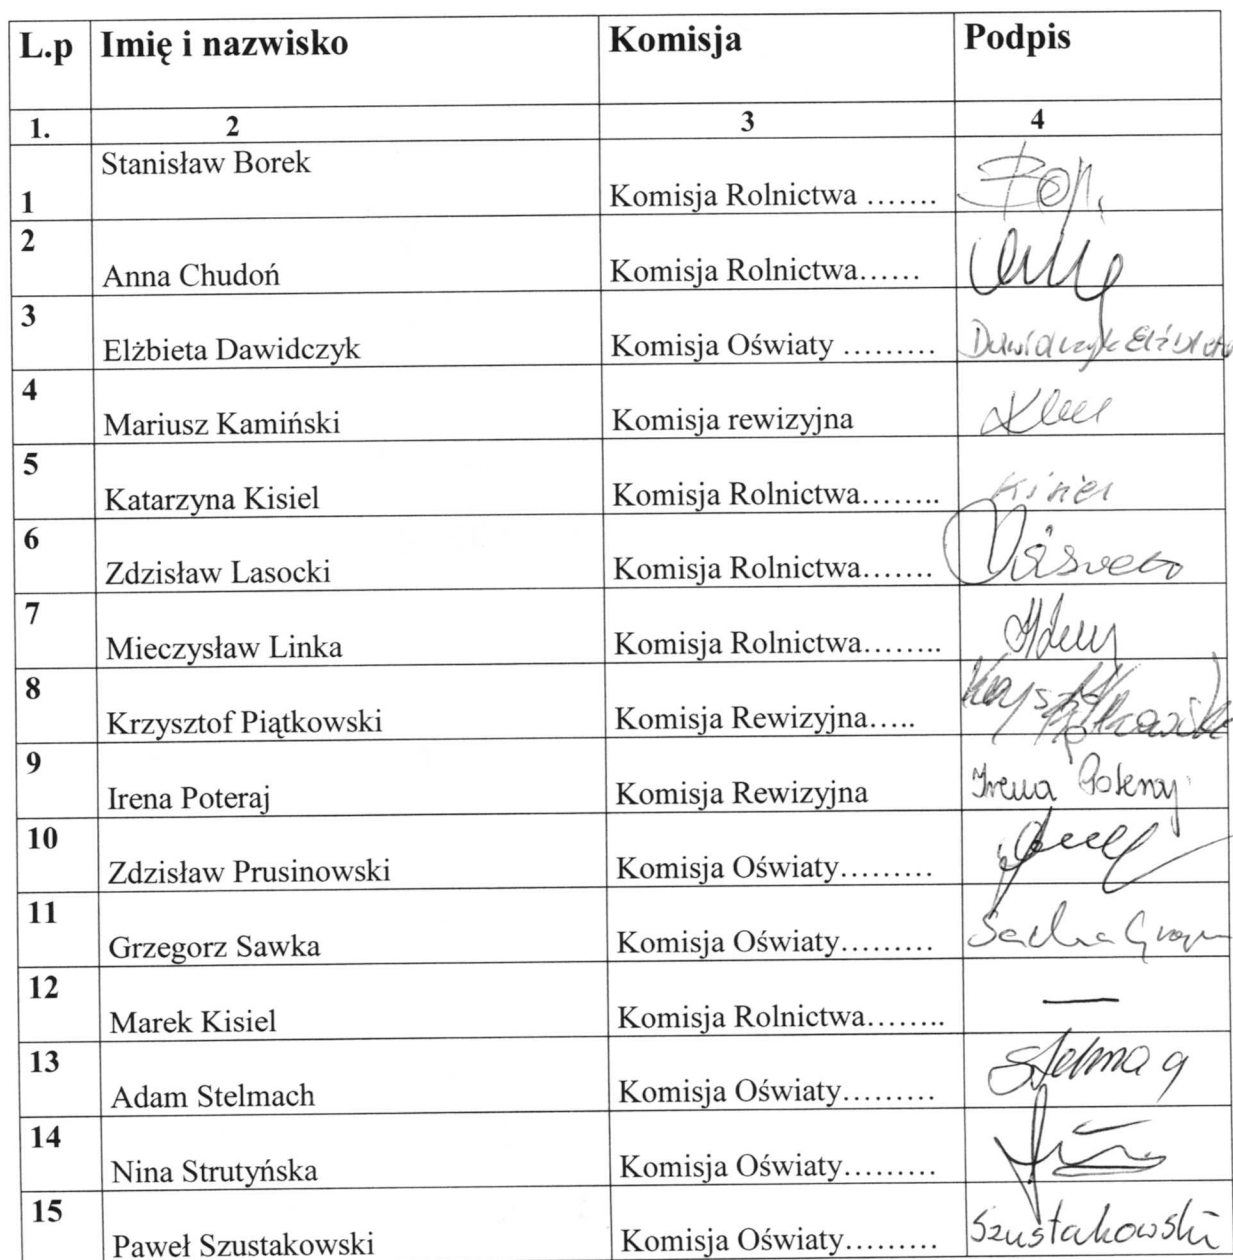 L.p Imię i nazwisko Komisja Podpis
1. 2 3 4
1 Stanisław Borek Komisja Rolnictwa …….
2 Anna Chudoń Komisja Rolnictwa……
3 Elżbieta Dawidczyk Komisja Oświaty ……… Dawidczyk Elżbieta
4 Mariusz Kamiński Komisja rewizyjna
5 Katarzyna Kisiel Komisja Rolnictwa…….. Kisiel
6 Zdzisław Lasocki Komisja Rolnictwa…….
7 Mieczysław Linka Komisja Rolnictwa……..
8 Krzysztof Piątkowski Komisja Rewizyjna…..
9 Irena Poteraj Komisja Rewizyjna Irena Poteraj
10 Zdzisław Prusinowski Komisja Oświaty………
11 Grzegorz Sawka Komisja Oświaty………
12 Marek Kisiel Komisja Rolnictwa…….. —
13 Adam Stelmach Komisja Oświaty………
14 Nina Strutyńska Komisja Oświaty………
15 Paweł Szustakowski Komisja Oświaty……… Szustakowski